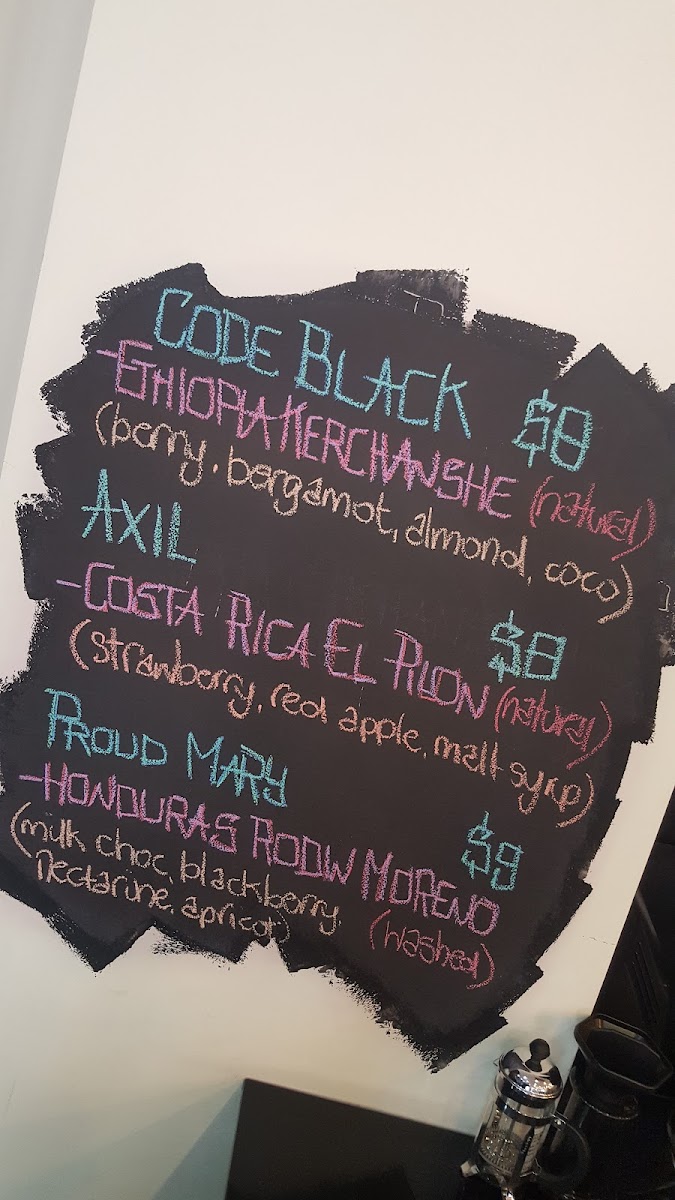 CODE BLACK $8
-ETHIOPIA KERCHANSHE (natural)
(berry, bergamot, almond, coco)
AXIL
-COSTA RICA EL PILON (natural) $8
(strawberry, red apple, malt syrup)
PROUD MARY
-HONDURAS RODIN MORENO $9
(milk choc, blackberry,
nectarine, apricot) (washed)